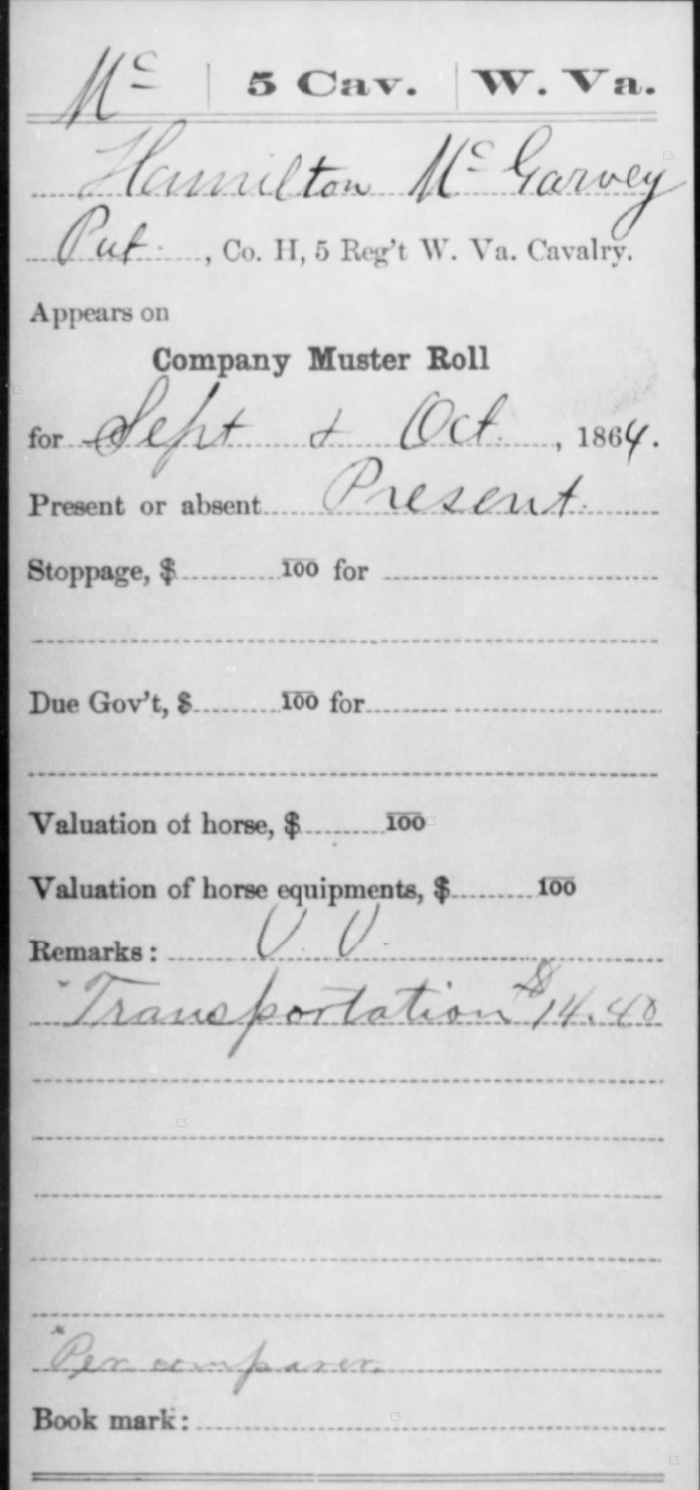 Mc | 5 Cav. | W. Va.
Hamilton McGarvey
Pvt., Co. H, 5 Reg't W. Va. Cavalry.
Appears on
Company Muster Roll
for Sept & Oct., 1864.
Present or absent Present.
Stoppage, $ 100 for
Due Gov't, $ 100 for
Valuation of horse, $ 100
Valuation of horse equipments, $ 100
Remarks: V. V.
*Transportation $14.40
*Per comparer.
Book mark: